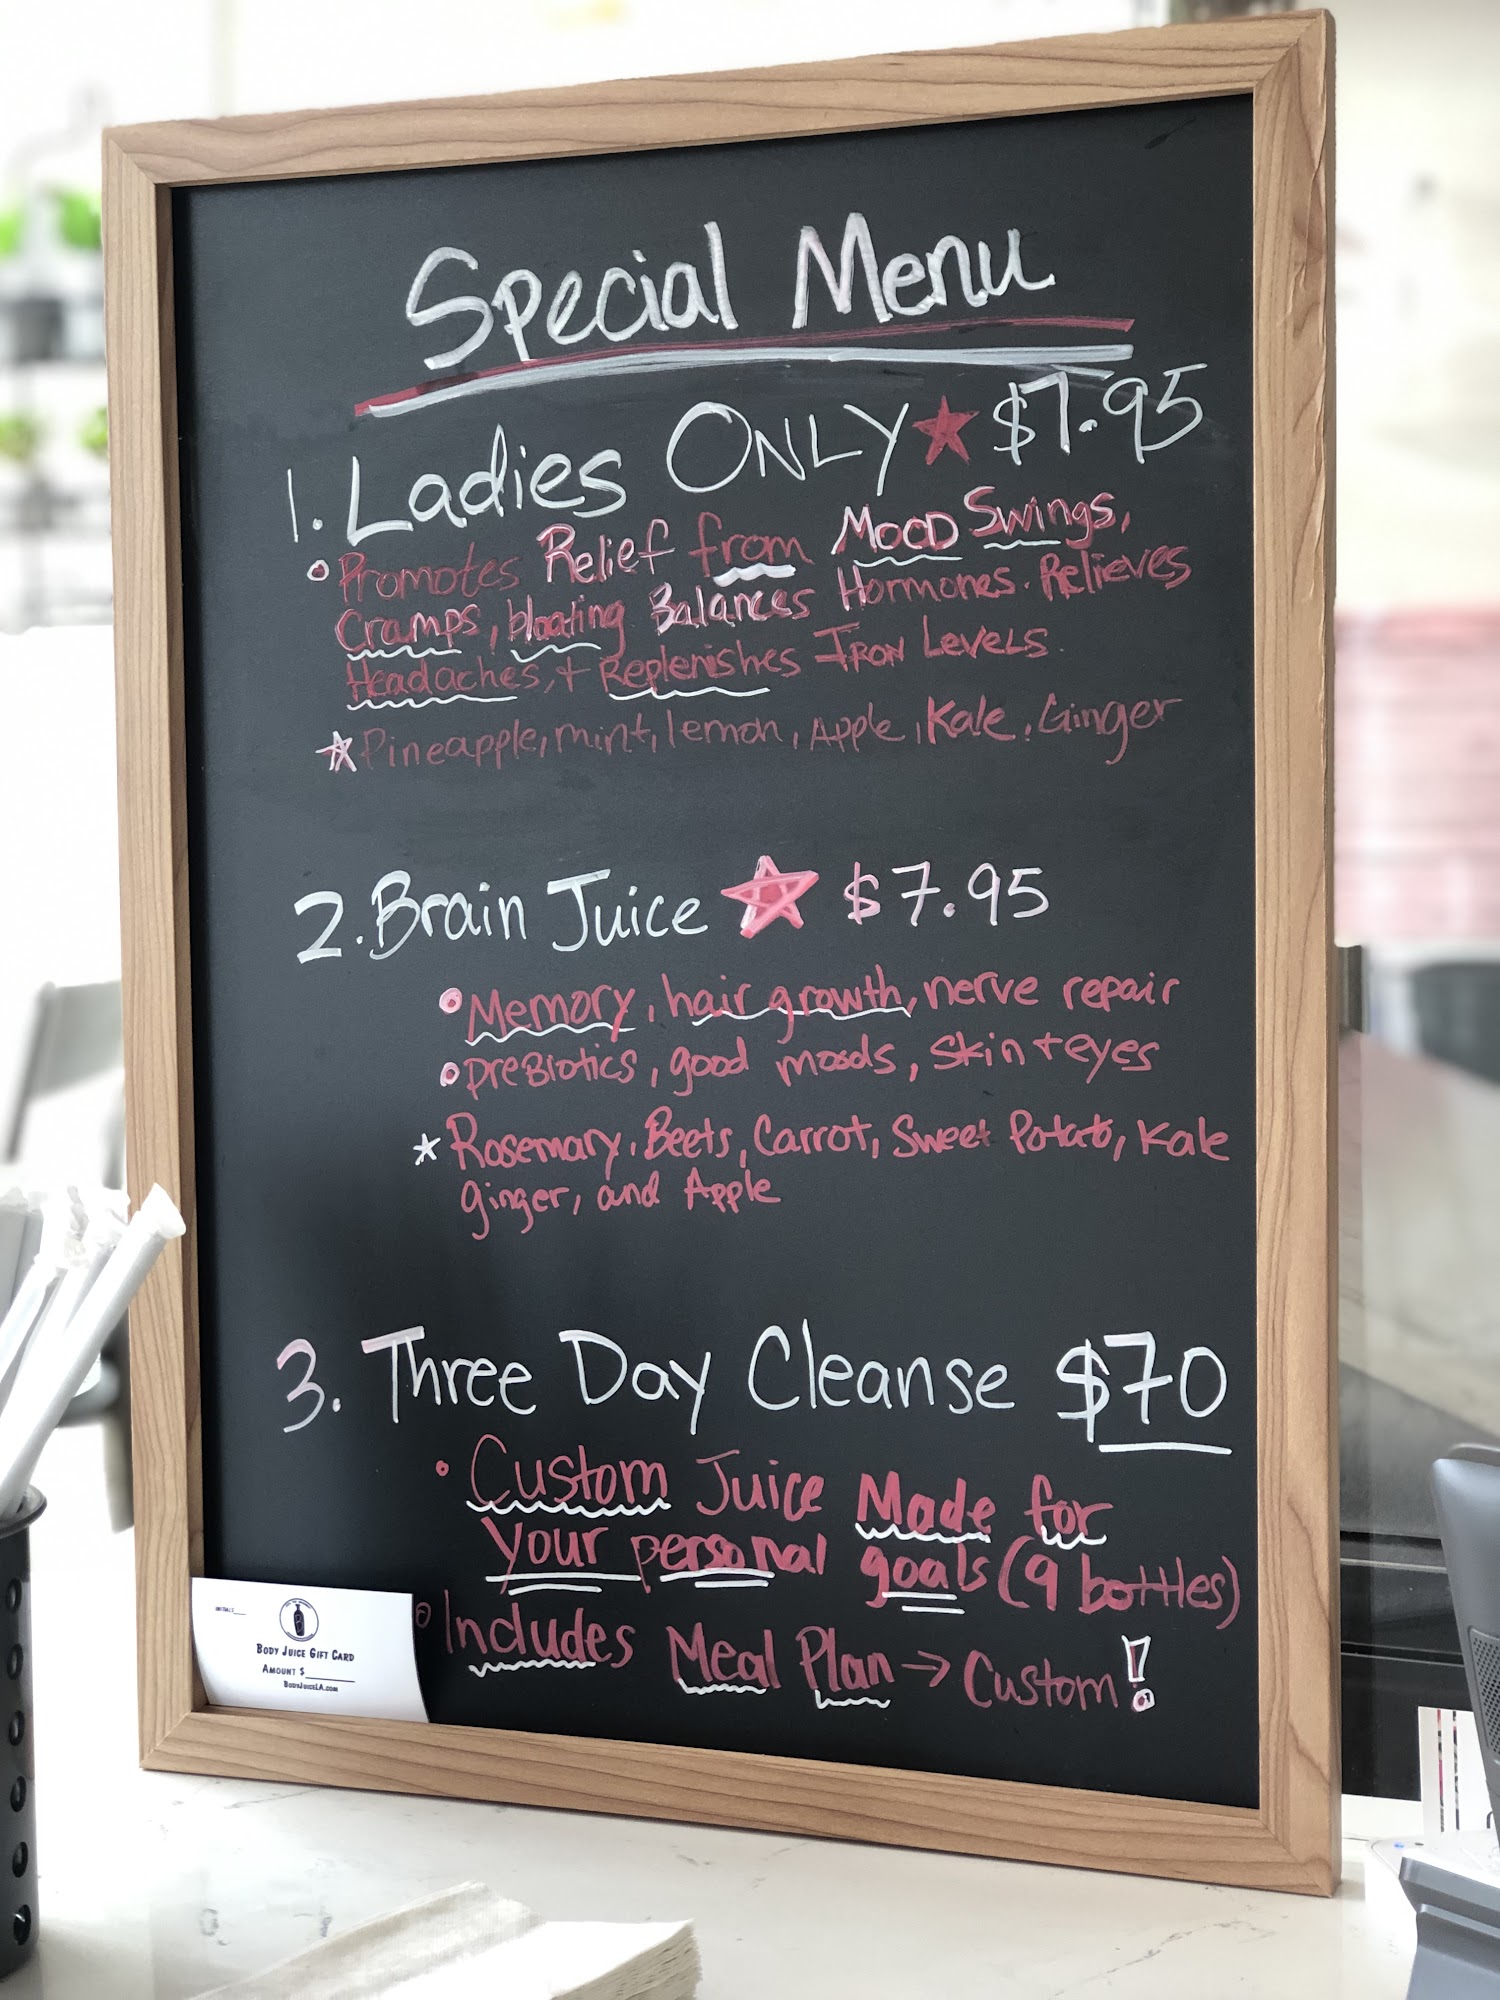 Special Menu
1. Ladies ONLY $7.95
Promotes Relief from MOOD Swings,
Cramps, bloating Balances Hormones. Relieves
Headaches, + Replenishes IRON LEVELS.
Pineapple, mint, lemon, Apple, Kale, Ginger
2. Brain Juice $7.95
Memory, hair growth, nerve repair
preBiotics, good moods, skin + eyes
Rosemary, Beets, Carrot, Sweet Potato, Kale
ginger, and Apple
3. Three Day Cleanse $70
Custom Juice Made for
your personal goals (9 bottles)
Includes Meal Plan → Custom!
INITIALS
BODY JUICE GIFT CARD
AMOUNT $
BODYJUICELA.COM